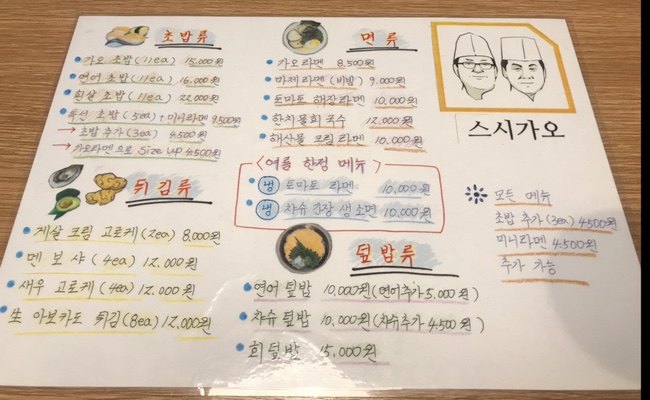 초밥류
가오 초밥(11ea) 15,000원
연어 초밥(11ea) 16,000원
흰살 초밥(11ea) 22,000원
특선 초밥(5ea)+미니라멘 9,500원
→ 초밥 추가(3ea) 4,500원
→ 가오라멘으로 Size up 4,500원
튀김류
게살 크림 고로케(2ea) 8,000원
멘보샤(4ea) 12,000원
새우 고로케(4ea) 12,000원
生 아보카도 튀김(8ea) 12,000원
면류
가오라멘 8,500원
마제라멘(비빔) 9,000원
토마토 해장라멘 10,000원
한치물회 국수 12,000원
해산물 크림 라멘 10,000원
<여름 한정 메뉴>
냉 토마토 라멘 10,000원
냉 차슈 간장 생소면 10,000원
덮밥류
연어 덮밥 10,000원(연어추가 5,000원)
차슈 덮밥 10,000원(차슈추가 4,500원)
회덮밥 15,000원
스시가오
모든 메뉴
초밥 추가(3ea) 4,500원
미니라멘 4,500원
추가 가능